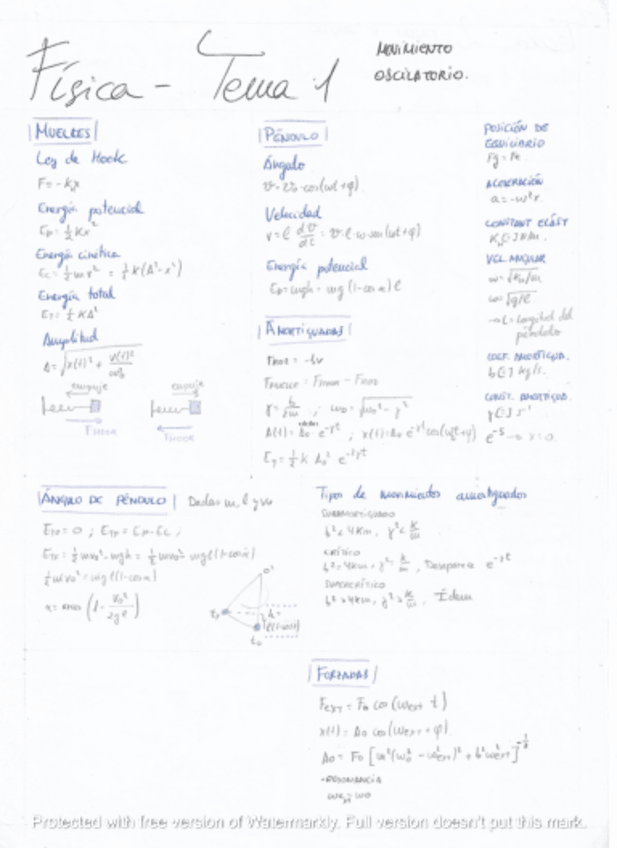 Física - Tema 1
MOVIMIENTO
OSCILATORIO.
|MUELLES|
Ley de Hook
F = -kx
Energía potencial
Ep = ½ Kx²
Energía cinética
Ec = ½ mv² = ½ K(A² - x²)
Energía total
ET = ½ KA²
Amplitud
A = √(x(t)² + v(t)²/ω₀²)
empuje
empuje
FHOOK
FHOOK
|PÉNDULO|
Ángulo
Velocidad
Energía potencial
Ep = mgh = mg (1 - cos α) l
|AMORTIGUADAS|
FAMOR = -bv
γ = b/2m ; ω₀ =
A(t) = A₀ e^-γt ; x(t) = A₀ e^-γt cos(
ET = ½ K A₀² e^-2γt
POSICIÓN DE
EQUILIBRIO
Fg = Fe
ACELERACIÓN
a = -ω²x.
CONSTANT ELÁST
VEL. ANGULAR
ω = √g/l
→ L = longitud del
péndulo
COEF. AMORTIGUA.
b [=] kg/s.
CONST. AMORTIGUA.
γ [=] s⁻¹
e⁻⁵ → x = 0
|ÁNGULO DE PÉNDULO| Dadas m, l y v₀
½ mv₀² = mgl(1 - cos α)
Tipos de movimientos amortiguados
SUBAMORTIGUADO
b² < 4Km, γ² < K/m
CRÍTICO
b² = 4Km, γ² = K/m, Desaparece e^-γt
SUPERCRÍTICO
b² > 4Km, γ² > K/m, Ídem
|FORZADAS|
Fext = F₀ cos (ωext t)
x(t) = A₀ cos (ωext + φ)
A₀ = F₀ [m²(ω₀² - ω²ext)² + b²ω²ext]^-½
-RESONANCIA
ωext = ω₀
Protected with free version of Watermarkly. Full version doesn't put this mark.